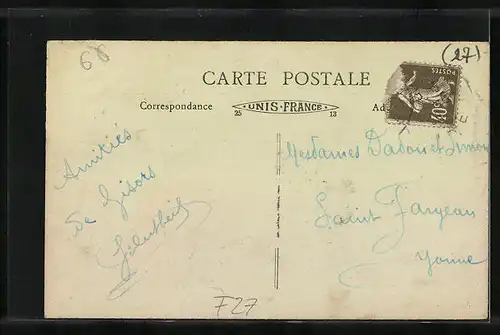 68
(27)
CARTE POSTALE
Correspondance
UNIS-FRANCE
25 13
POSTES
40c
Amitiés
de Gisors
Mesdames
Saint Fargeau
Yonne
F27